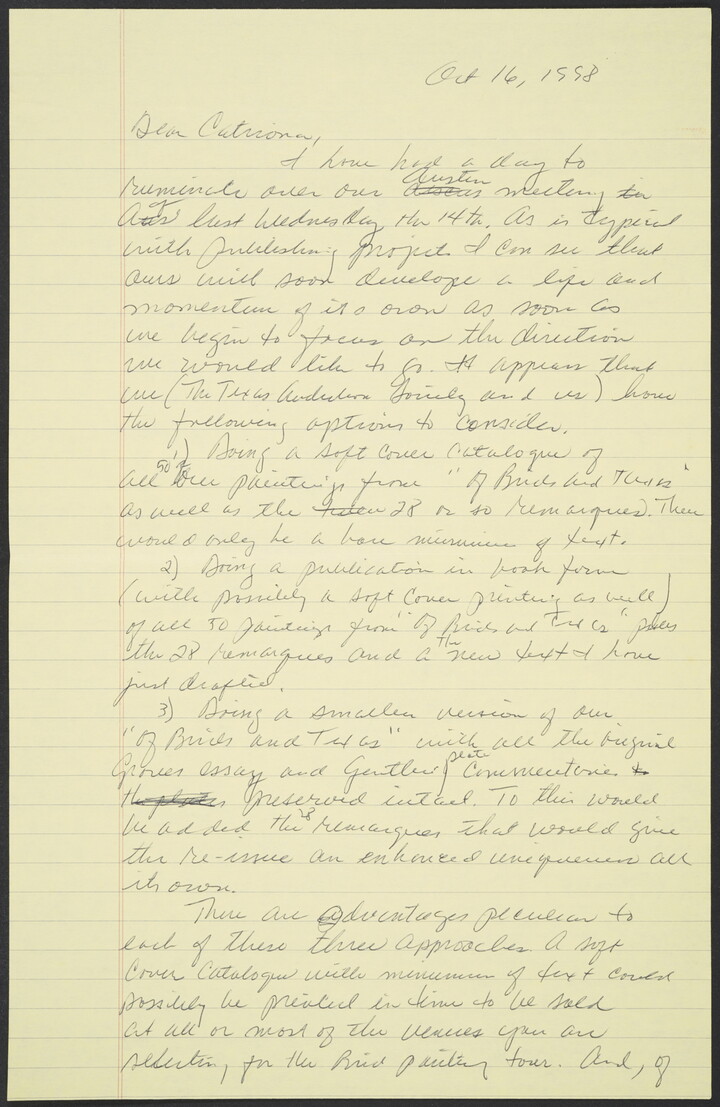 Oct 16, 1998
Dear Catriona,
I have had a day to
ruminate over our Austin meeting
last Wednesday the 14th. As is typical
with publishing projects I can see that
ours will soon develope a life and
momentum of its own as soon as
we begin to focus on the direction
we would like to go. It appears that
we (The Texas Audubon Society and us) have
the following options to consider.
1) Doing a soft cover catalogue of
all 50 of our paintings from "Of Birds and Texas"
as well as the 28 or so remarques. There
would only be a bare minimum of text.
2) Doing a publication in book form
(with possibly a soft cover printing as well)
of all 50 paintings from "Of Birds and Texas" plus
the 28 remarques and the new text I have
just drafted.
3) Doing a smaller version of our
"Of Birds and Texas" with all the original
Graves essay and Gentling plate Commentaries
preserved intact. To this would
be added the 28 remarques that would give
the re-issue an enhanced uniqueness all
its own.
There are advantages peculiar to
each of these three approaches. A soft
cover catalogue with minimum of text could
possibly be printed in time to be sold
at all or most of the venues you are
selecting for the Bird painting tour. And, of